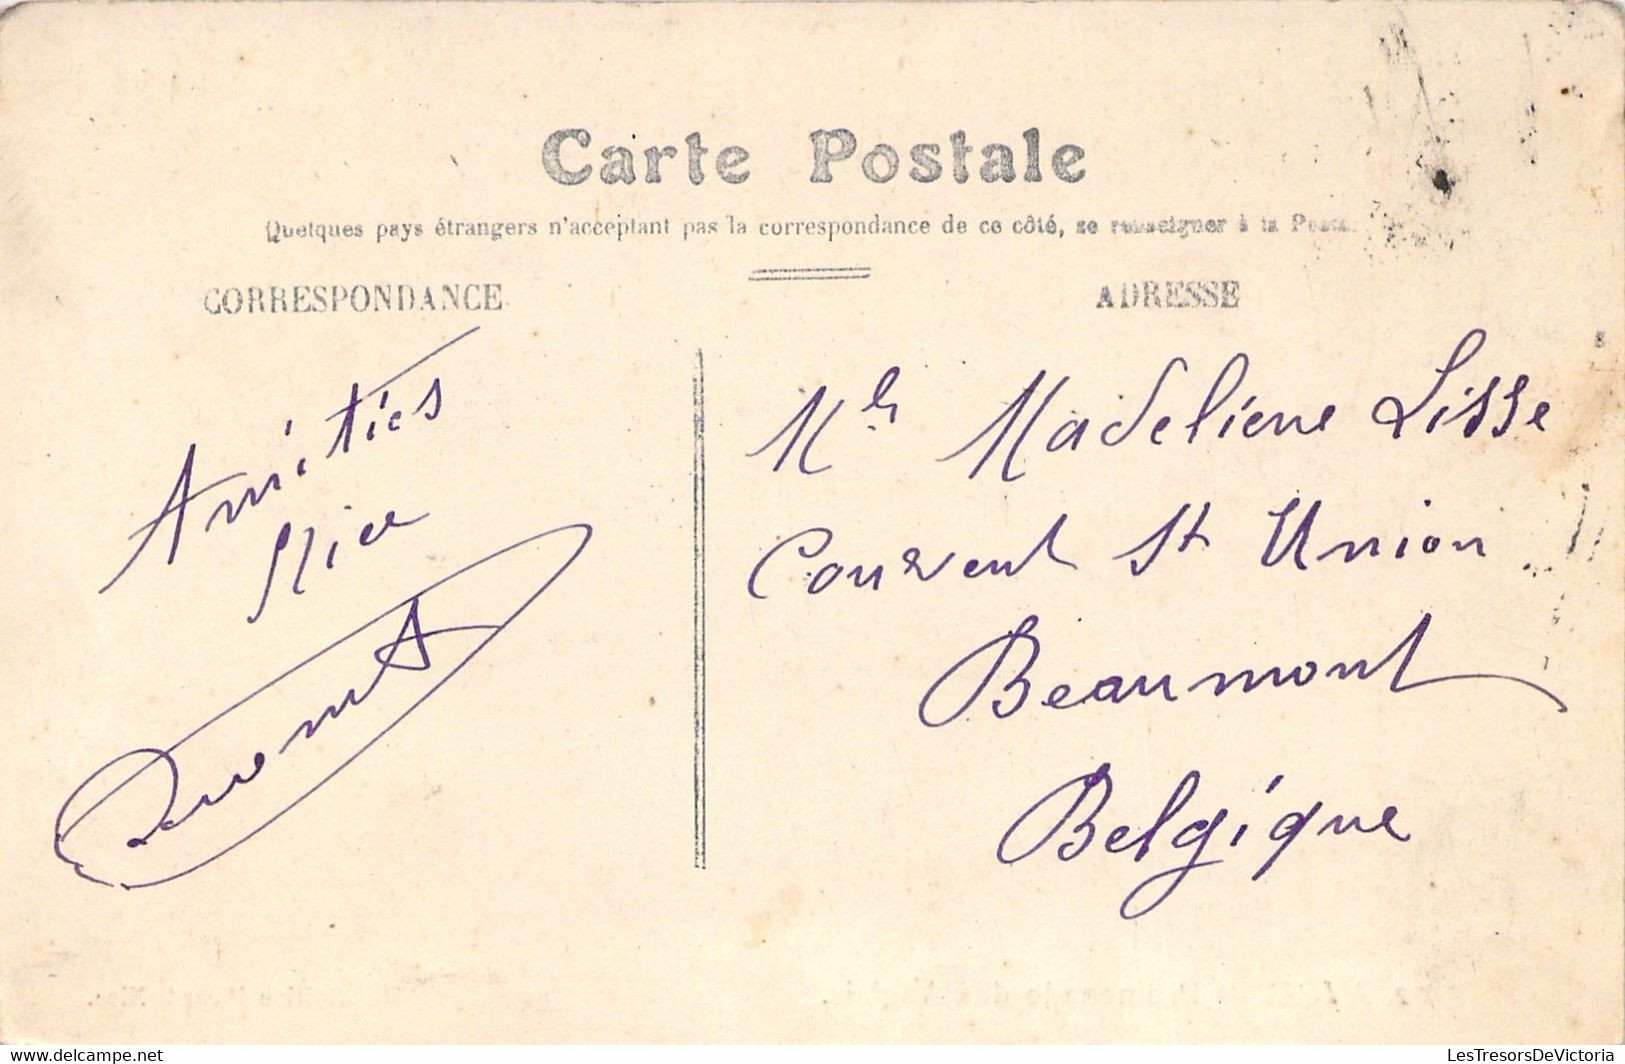 Carte Postale
Quelques pays étrangers n'acceptant pas la correspondance de ce côté, se renseigner à la Poste.
CORRESPONDANCE
ADRESSE
Amitiés
Nice
Mle Madeliene Lisse
Couvent St Union
Beaumont
Belgique
LesTresorsDeVictoria
delcampe.net